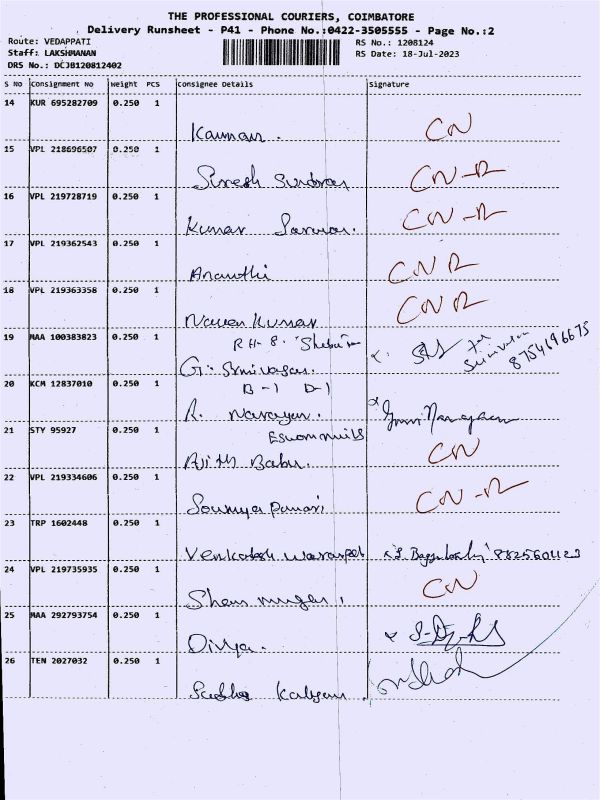 THE PROFESSIONAL COURIERS, COIMBATORE
Delivery Runsheet - P41 - Phone No.:0422-3505555 - Page No.:2
Route: VEDAPPATI RS No.: 1208124
Staff: LAKSHMANAN RS Date: 18-Jul-2023
DRS No.: DCJB120812402
S No Consignment No Weight PCS Consignee Details Signature
14 KUR 695282709 0.250 1
Kannan. CN
15 VPL 218696507 0.250 1
Suresh Sundran CN-R
16 VPL 219728719 0.250 1
Kumar CN-R
17 VPL 219362543 0.250 1
Ananthi CN R
18 VPL 219363358 0.250 1
Naven Kumar CN R
19 MAA 100383823 0.250 1
RH-8. 8754696675
G. Srinivasan.
20 KCM 12837010 0.250 1
B-1 D-1
R. Narayan.
21 STY 95927 0.250 1
Ajith Babu. CN
22 VPL 219334606 0.250 1
Sowmya CN-R
23 TRP 1602448 0.250 1
Venkatesh 9825601123
24 VPL 219735935 0.250 1
Shanmugan. CN
25 MAA 292793754 0.250 1
Divya.
26 TEN 2027032 0.250 1
Kalyani